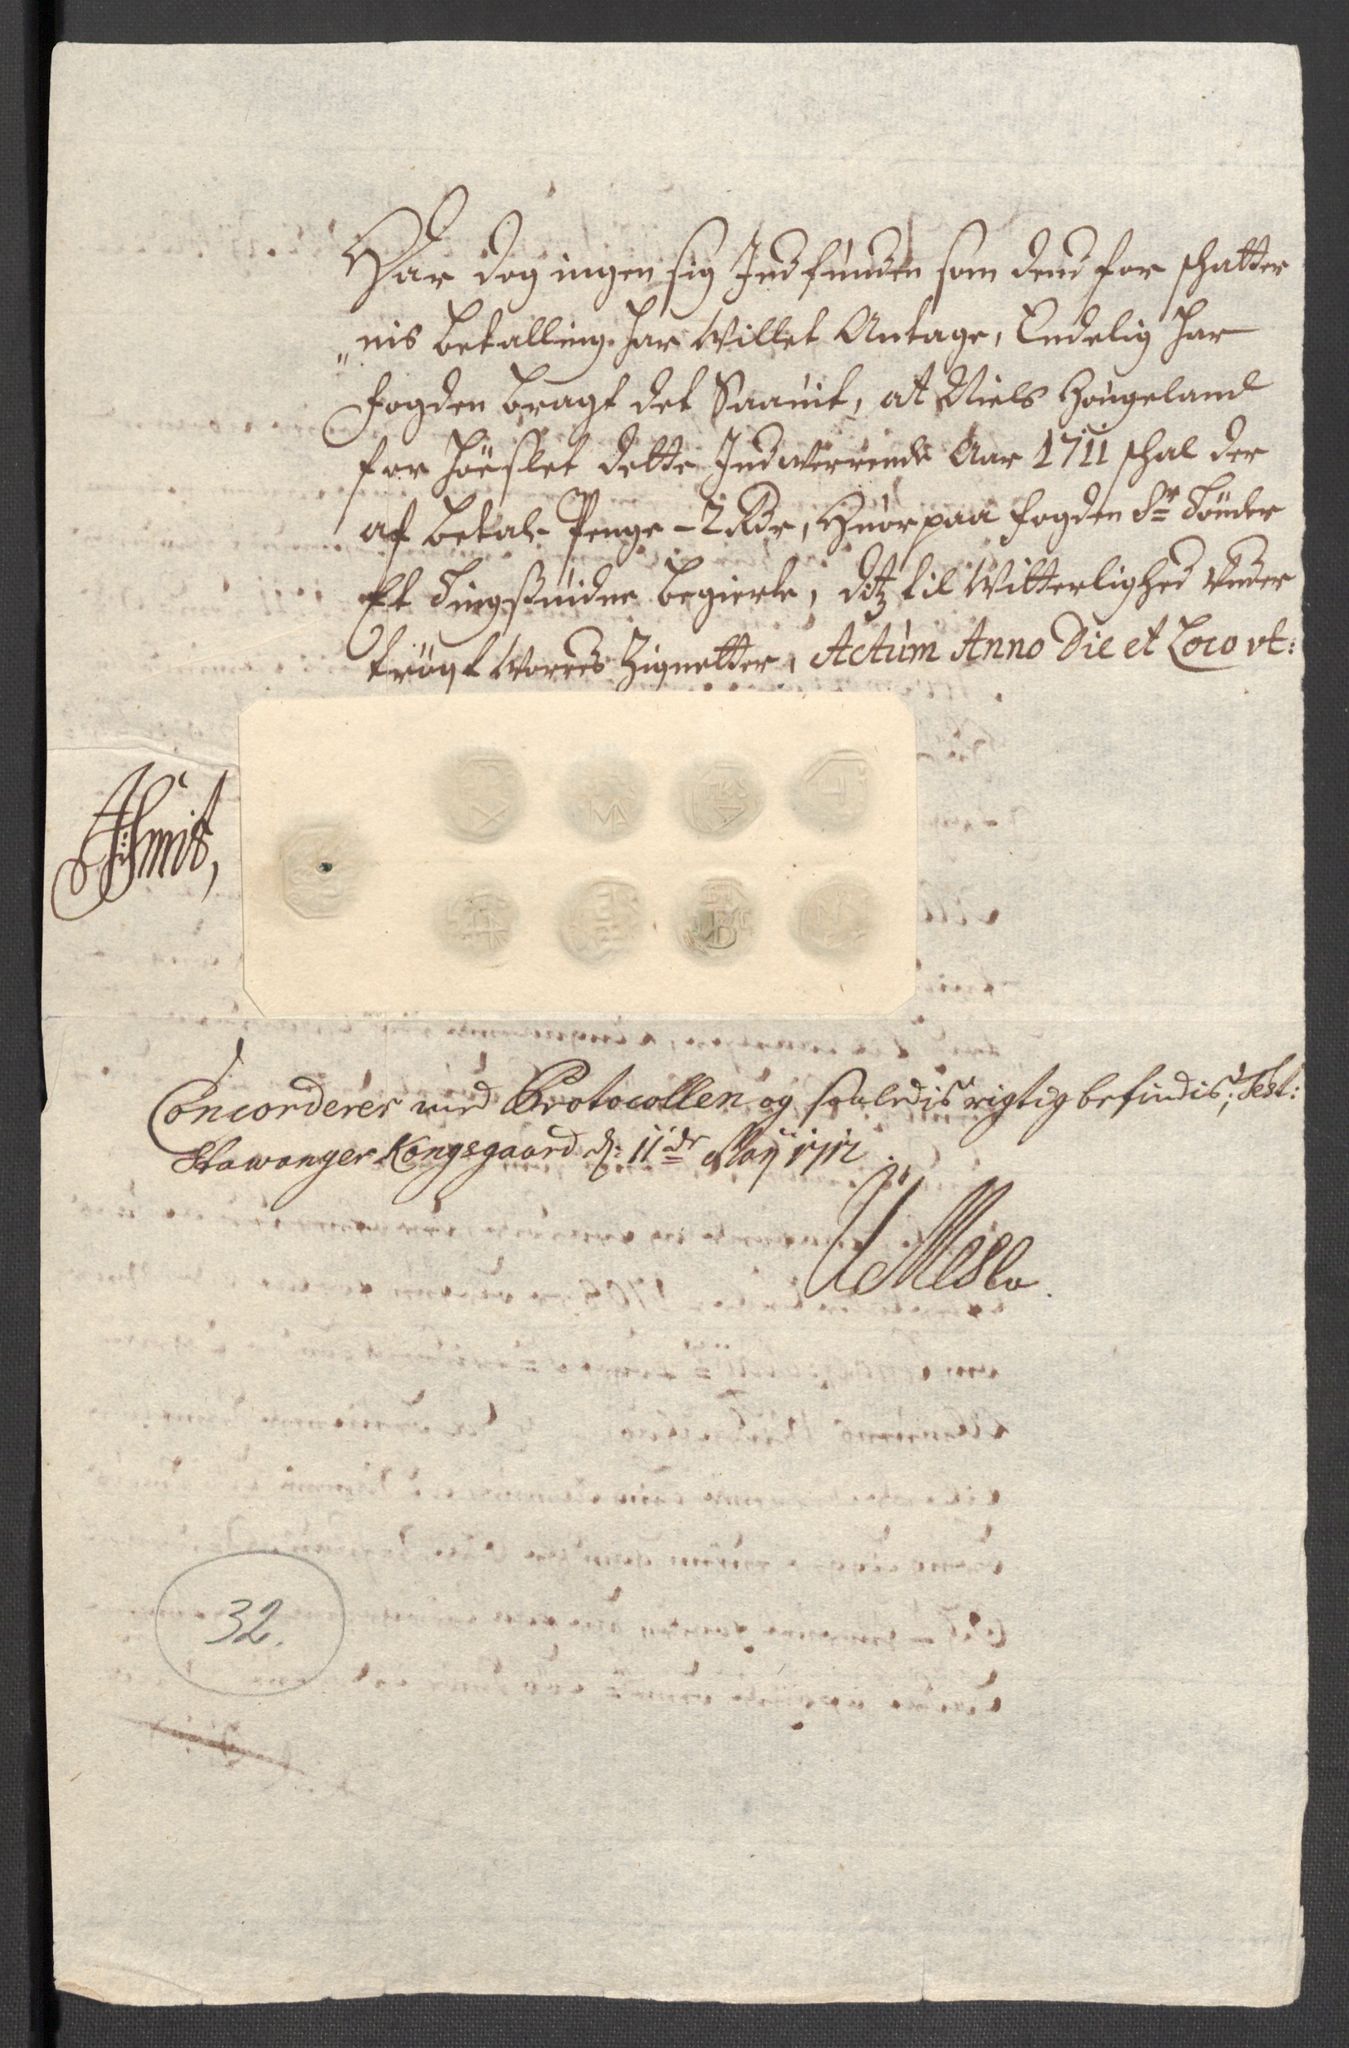 Har dog ingen sig Indfunden som dend for schatter
"nis betalling har Willet Antage, Endelig har
fogden bragt det Saauit, at Niels Hougeland
for Höeslet dette Indwerrende Aar 1711 schal der
af betale Penge - 2 Rdr, Huorpaa fogden Sr Tönder
Et Tingswidne begierte, ditz til Witterlighed Under
trögt Worres Zignetter, Actum Anno Die et Loco ut:
Concorderer med Protocollen og saaledis rigtig befindis, Test:
Stawanger Kongsgaard d: 11de Maij 1712
32.